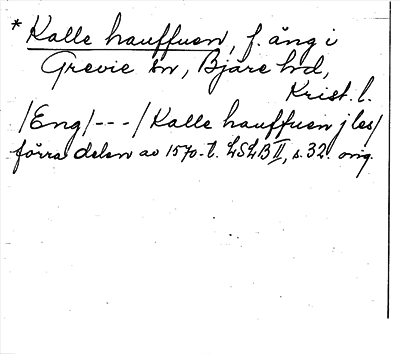 * Kalle hauffuen, f. äng i
Grevie sn, Bjäre hd,
Krist. l.
/Eng/---/Kalle hauffuen j les/
förra delen av 1570-t. LSLB II, s. 32. orig.